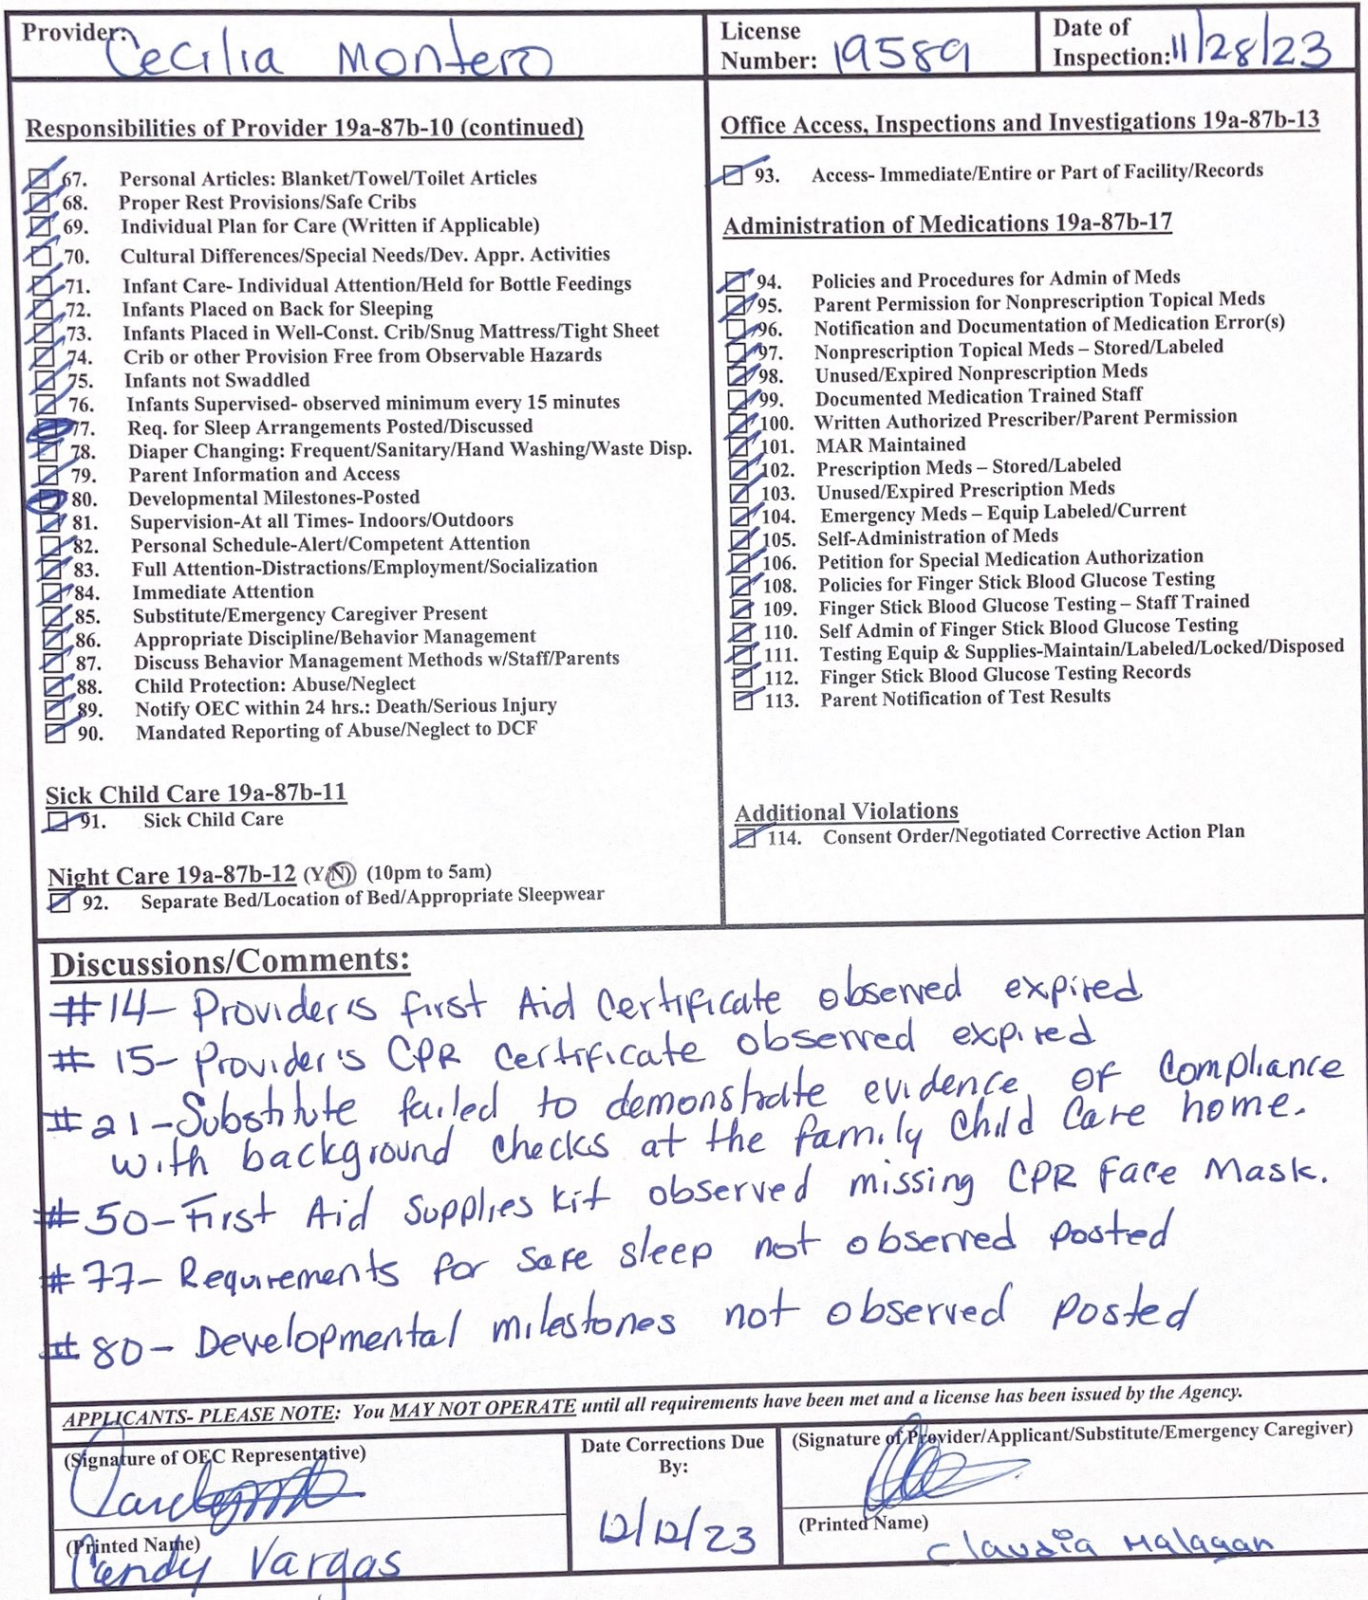 Provider: Cecilia Montero
License Number: 19589
Date of Inspection: 11/28/23
Responsibilities of Provider 19a-87b-10 (continued)
67. Personal Articles: Blanket/Towel/Toilet Articles
68. Proper Rest Provisions/Safe Cribs
69. Individual Plan for Care (Written if Applicable)
70. Cultural Differences/Special Needs/Dev. Appr. Activities
71. Infant Care- Individual Attention/Held for Bottle Feedings
72. Infants Placed on Back for Sleeping
73. Infants Placed in Well-Const. Crib/Snug Mattress/Tight Sheet
74. Crib or other Provision Free from Observable Hazards
75. Infants not Swaddled
76. Infants Supervised- observed minimum every 15 minutes
77. Req. for Sleep Arrangements Posted/Discussed
78. Diaper Changing: Frequent/Sanitary/Hand Washing/Waste Disp.
79. Parent Information and Access
80. Developmental Milestones-Posted
81. Supervision-At all Times- Indoors/Outdoors
82. Personal Schedule-Alert/Competent Attention
83. Full Attention-Distractions/Employment/Socialization
84. Immediate Attention
85. Substitute/Emergency Caregiver Present
86. Appropriate Discipline/Behavior Management
87. Discuss Behavior Management Methods w/Staff/Parents
88. Child Protection: Abuse/Neglect
89. Notify OEC within 24 hrs.: Death/Serious Injury
90. Mandated Reporting of Abuse/Neglect to DCF
Sick Child Care 19a-87b-11
91. Sick Child Care
Night Care 19a-87b-12 (Y/N) (10pm to 5am)
92. Separate Bed/Location of Bed/Appropriate Sleepwear
Office Access, Inspections and Investigations 19a-87b-13
93. Access- Immediate/Entire or Part of Facility/Records
Administration of Medications 19a-87b-17
94. Policies and Procedures for Admin of Meds
95. Parent Permission for Nonprescription Topical Meds
96. Notification and Documentation of Medication Error(s)
97. Nonprescription Topical Meds – Stored/Labeled
98. Unused/Expired Nonprescription Meds
99. Documented Medication Trained Staff
100. Written Authorized Prescriber/Parent Permission
101. MAR Maintained
102. Prescription Meds – Stored/Labeled
103. Unused/Expired Prescription Meds
104. Emergency Meds – Equip Labeled/Current
105. Self-Administration of Meds
106. Petition for Special Medication Authorization
108. Policies for Finger Stick Blood Glucose Testing
109. Finger Stick Blood Glucose Testing – Staff Trained
110. Self Admin of Finger Stick Blood Glucose Testing
111. Testing Equip & Supplies-Maintain/Labeled/Locked/Disposed
112. Finger Stick Blood Glucose Testing Records
113. Parent Notification of Test Results
Additional Violations
114. Consent Order/Negotiated Corrective Action Plan
Discussions/Comments:
#14- Provider's first Aid Certificate observed expired
# 15- Provider's CPR Certificate observed expired
#21-Substitute failed to demonstrate evidence of compliance
with background checks at the family Child Care home.
#50-First Aid Supplies kit observed missing CPR Face Mask.
#77- Requirements for safe sleep not observed posted
#80- Developmental milestones not observed posted
APPLICANTS- PLEASE NOTE: You MAY NOT OPERATE until all requirements have been met and a license has been issued by the Agency.
(Signature of OEC Representative)
(Printed Name)
Candy Vargas
Date Corrections Due
By:
12/12/23
(Signature of Provider/Applicant/Substitute/Emergency Caregiver)
(Printed Name)
Claudia Malagan